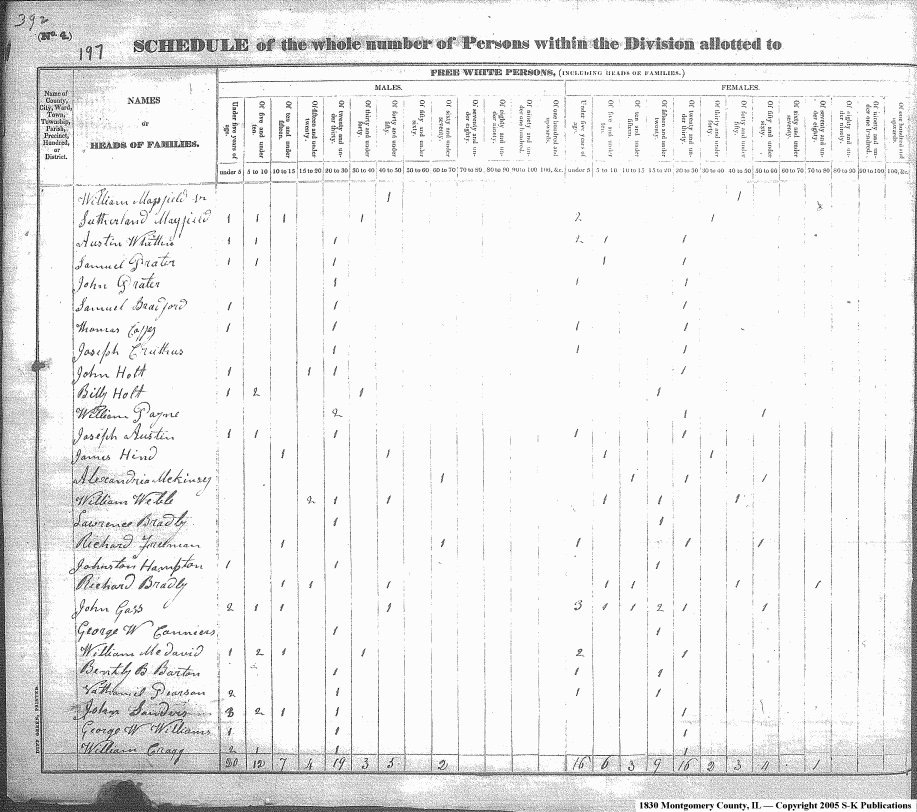 392
(No. 4.)
197
SCHEDULE of the whole number of Persons within the Division allotted to
FREE WHITE PERSONS, (INCLUDING HEADS OF FAMILIES.)
MALES. FEMALES.
Name of County, City, Ward, Town, Township, Parish, Precinct, Hundred, or District.
NAMES or HEADS OF FAMILIES.
Under five years of age. Of five and under ten. Of ten and under fifteen. Of fifteen and under twenty. Of twenty and under thirty. Of thirty and under forty. Of forty and under fifty. Of fifty and under sixty. Of sixty and under seventy. Of seventy and under eighty. Of eighty and under ninety. Of ninety and under one hundred. Of one hundred and upwards. Under five years of age. Of five and under ten. Of ten and under fifteen. Of fifteen and under twenty. Of twenty and under thirty. Of thirty and under forty. Of forty and under fifty. Of fifty and under sixty. Of sixty and under seventy. Of seventy and under eighty. Of eighty and under ninety. Of ninety and under one hundred. Of one hundred and upwards.
under 5 5 to 10 10 to 15 15 to 20 20 to 30 30 to 40 40 to 50 50 to 60 60 to 70 70 to 80 80 to 90 90 to 100 100, &c. under 5 5 to 10 10 to 15 15 to 20 20 to 30 30 to 40 40 to 50 50 to 60 60 to 70 70 to 80 80 to 90 90 to 100 100, &c.
William Mayfield sr 1 1
Sutherland Mayfield 1 1 1 1 2 1
Austin 1 1 1 2 1 1
Samuel Grater 1 1 1 1
John Grater 1 1
Samuel Bradford 1 1 1
Thomas 1 1 1 1
Joseph 1 1 1
John Holt 1 1 1 1
Billy Holt 1 2 1 1
William Payne 2 1 1
Joseph Austin 1 1 1 1 1
James Hind 1 1 1 1
Alexandria McKinsey 1 1 1 1
William Webb 2 1 1 1 1 1
Lawrence Bradly 1 1
Richard Freeman 1 1 1 1 1
Johnston Hampton 1 1 1
Richard Bradly 1 1 1 1 1 1 1
John Gass 2 1 1 1 3 1 1 2 1 1
George W 1 1
William McDavid 1 2 1 1 2 1
Bently B Barton 1 1 1
Nathaniel Pearson 2 1 1 1
John Sanders 3 2 1 1 1
George W Williams 1 1 1
William Cragg 2 1 1 1
20 12 7 4 19 3 5 2 16 6 3 9 16 2 3 4 1
1830 Montgomery County, IL — Copyright 2005 S-K Publications